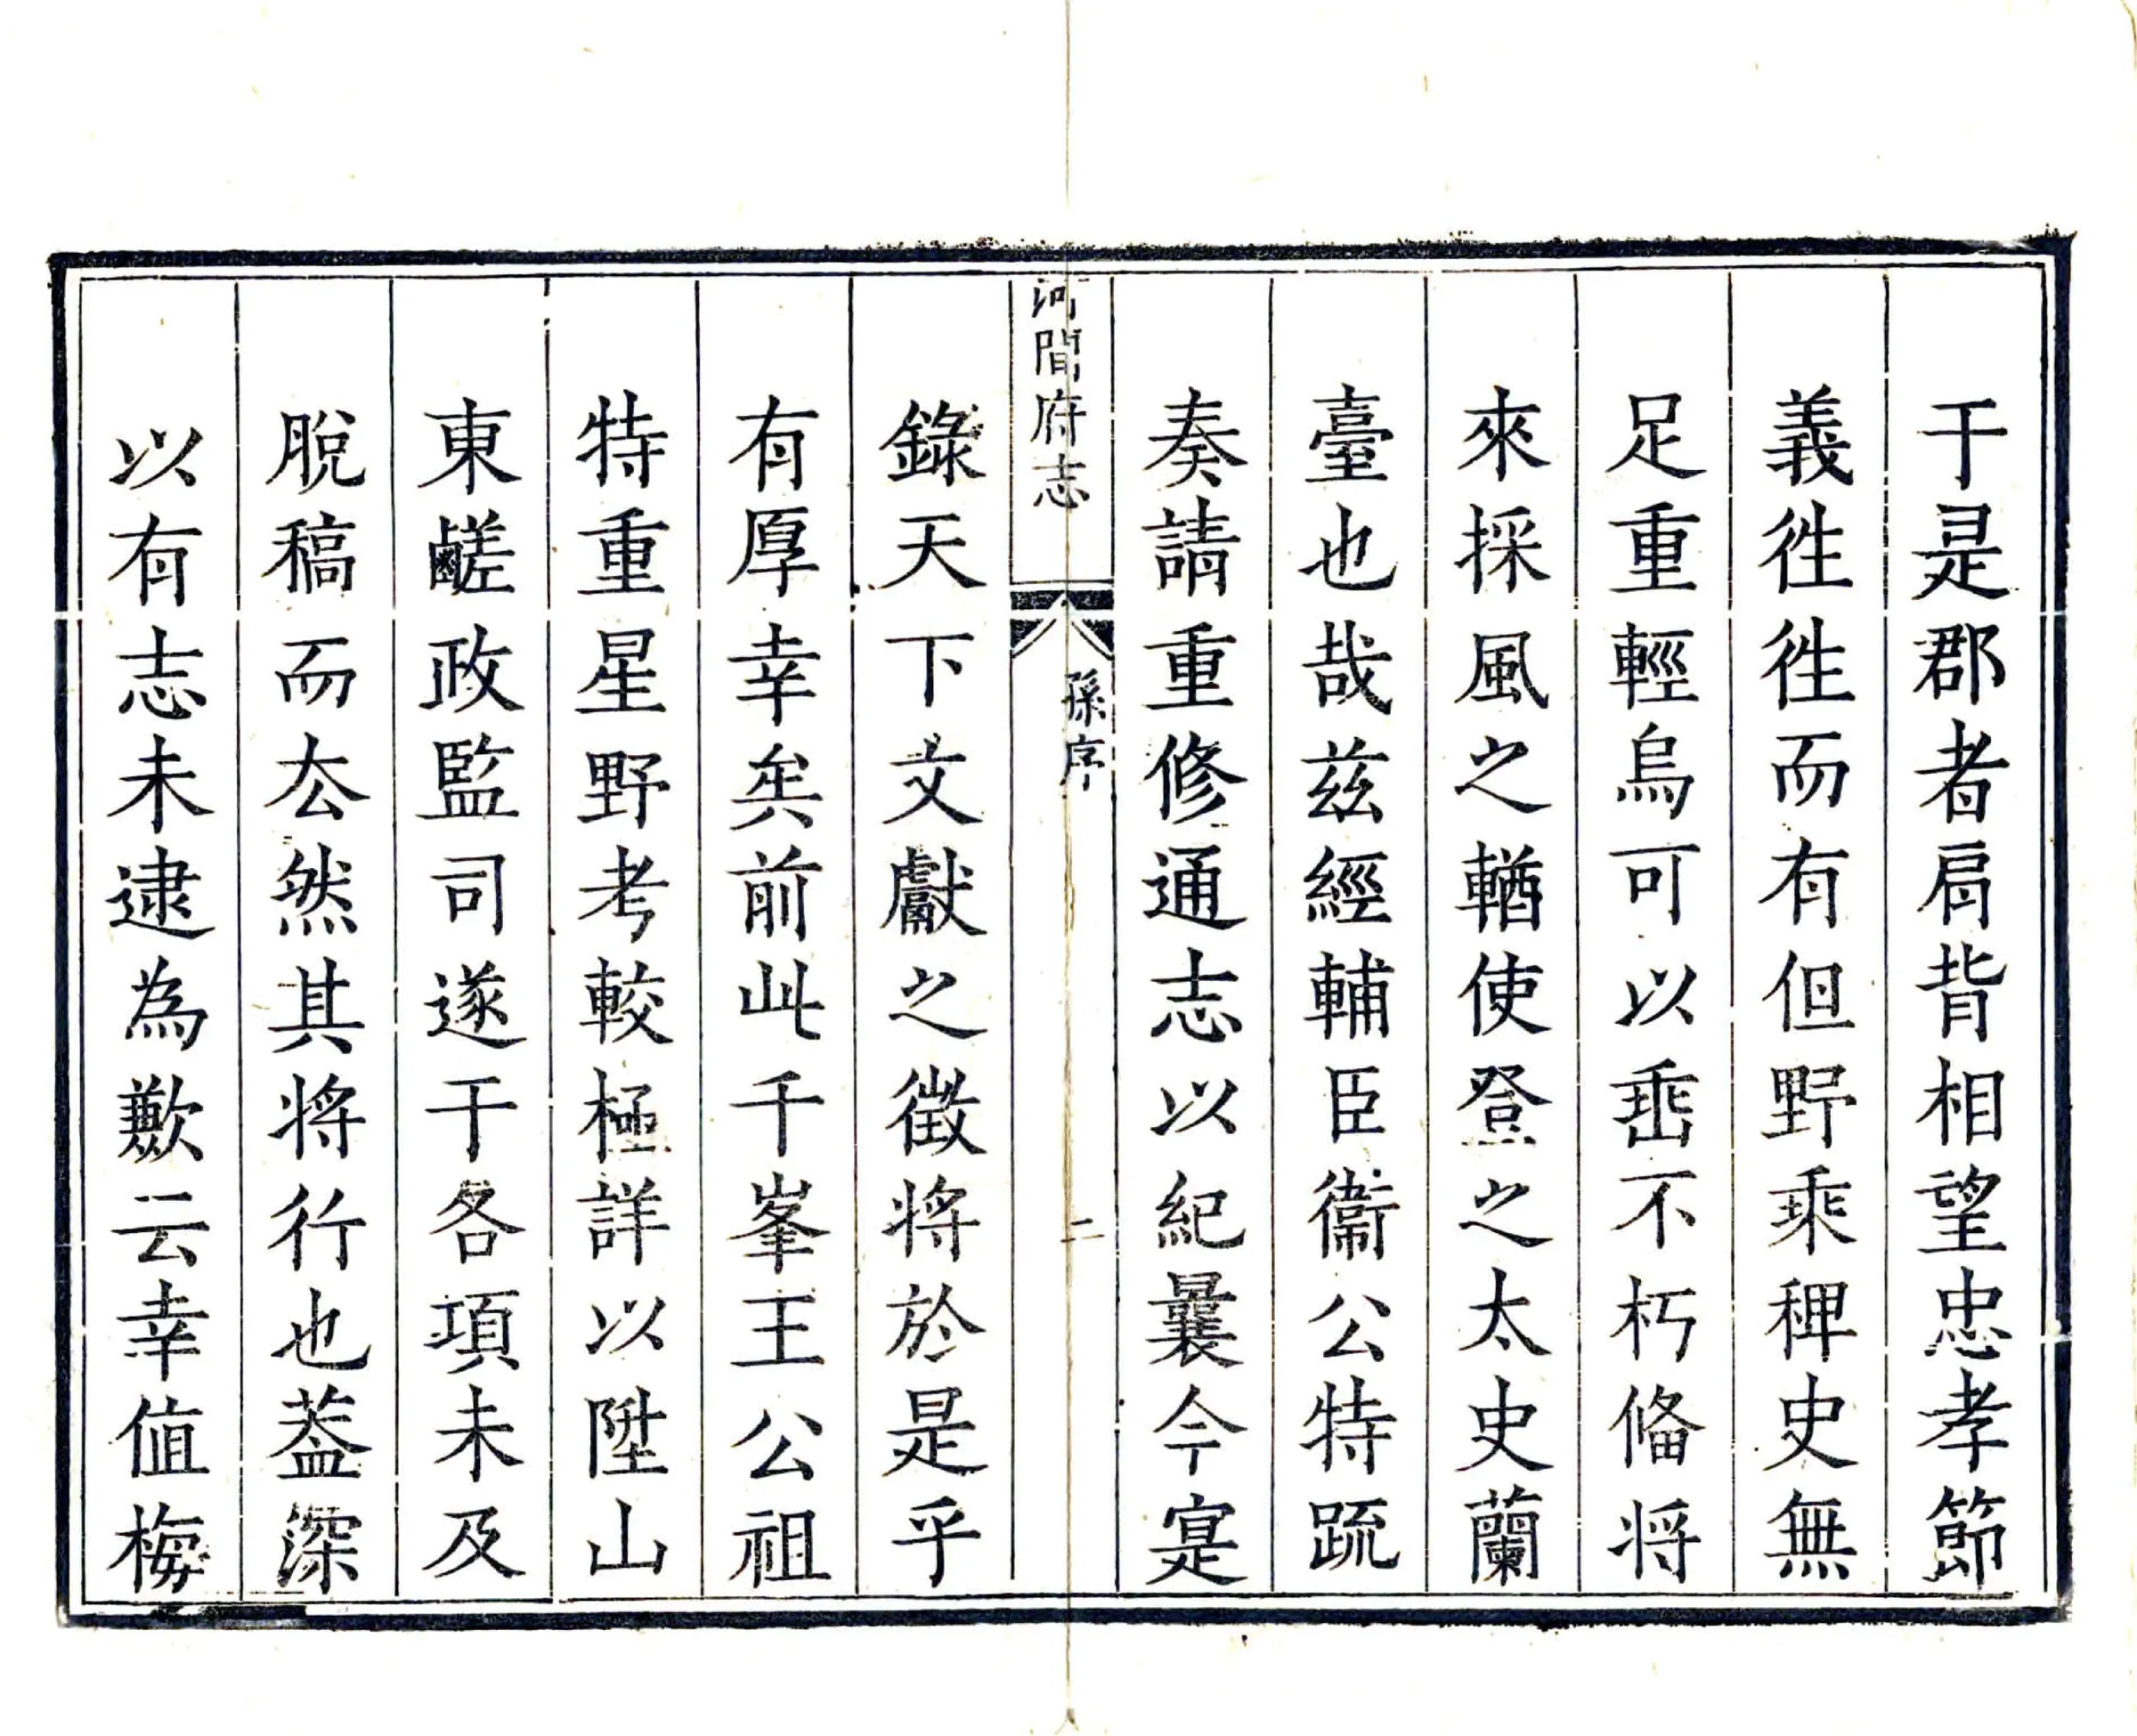 于是郡者肩背相望忠孝節
義徃徃而有但野乘稗史無
足重輕烏可以埀不朽俻将
來採風之輶使登之太史蘭
臺也哉茲經輔臣衞公特䟽
奏請重修通志以紀曩今寔
河間府志
孫序
二
錄天下文獻之徵将於是乎
有厚幸矣前此千峯王公祖
特重星野考較極詳以陞山
東鹺政監司遂于各項未及
脫稿而厺然其将行也葢深
以有志未逮為歉云幸值梅